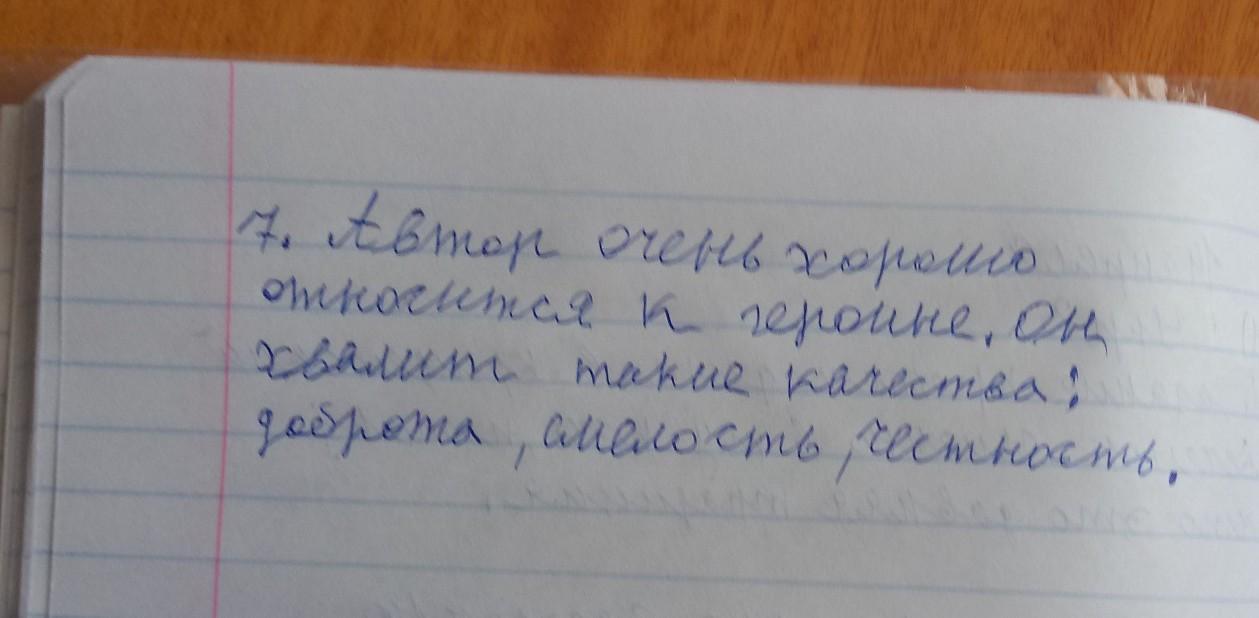 7. Автор очень хорошо
относится к героине. Он
хвалит такие качества:
доброта, смелость, честность.